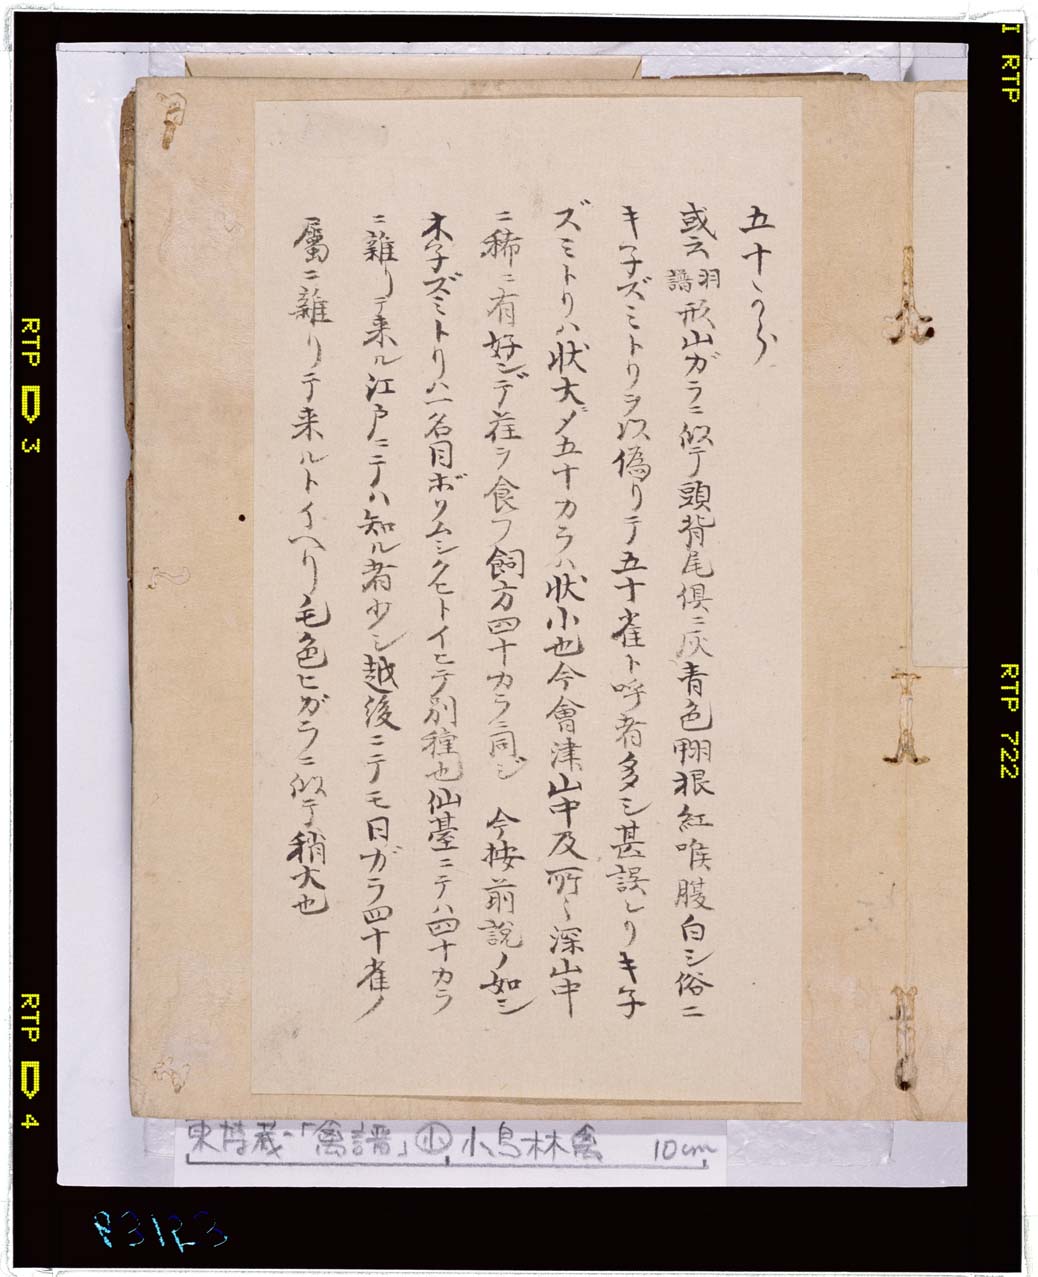 五十から
或云羽譜形山ガラニ似テ頭背尾倶ニ灰青色翅根紅喉腹白シ俗ニ
キ子ズミトリヲ以偽リテ五十雀ト呼者多シ甚誤レリキ子
ズミトリハ状大〆五十カラハ状小也今會津山中及所〻深山中
ニ稀ニ有好ンデ荏ヲ食フ飼方四十カラニ同ジ 今按前説ノ如シ
木子ズミトリハ一名目ボソムシクヒトイヒテ別種也仙臺ニテハ四十カラ
ニ雜リテ来ル江戸ニテハ知ル者少シ越後ニテモ日ガラ四十雀ノ
屬ニ雜リテ来ルトイヘリ毛色ヒガラニ似テ稍大也
東博蔵-「禽譜」㊥ 小鳥林禽 10cm
I RTP
RTP 722
RTP D 3
RTP D 4